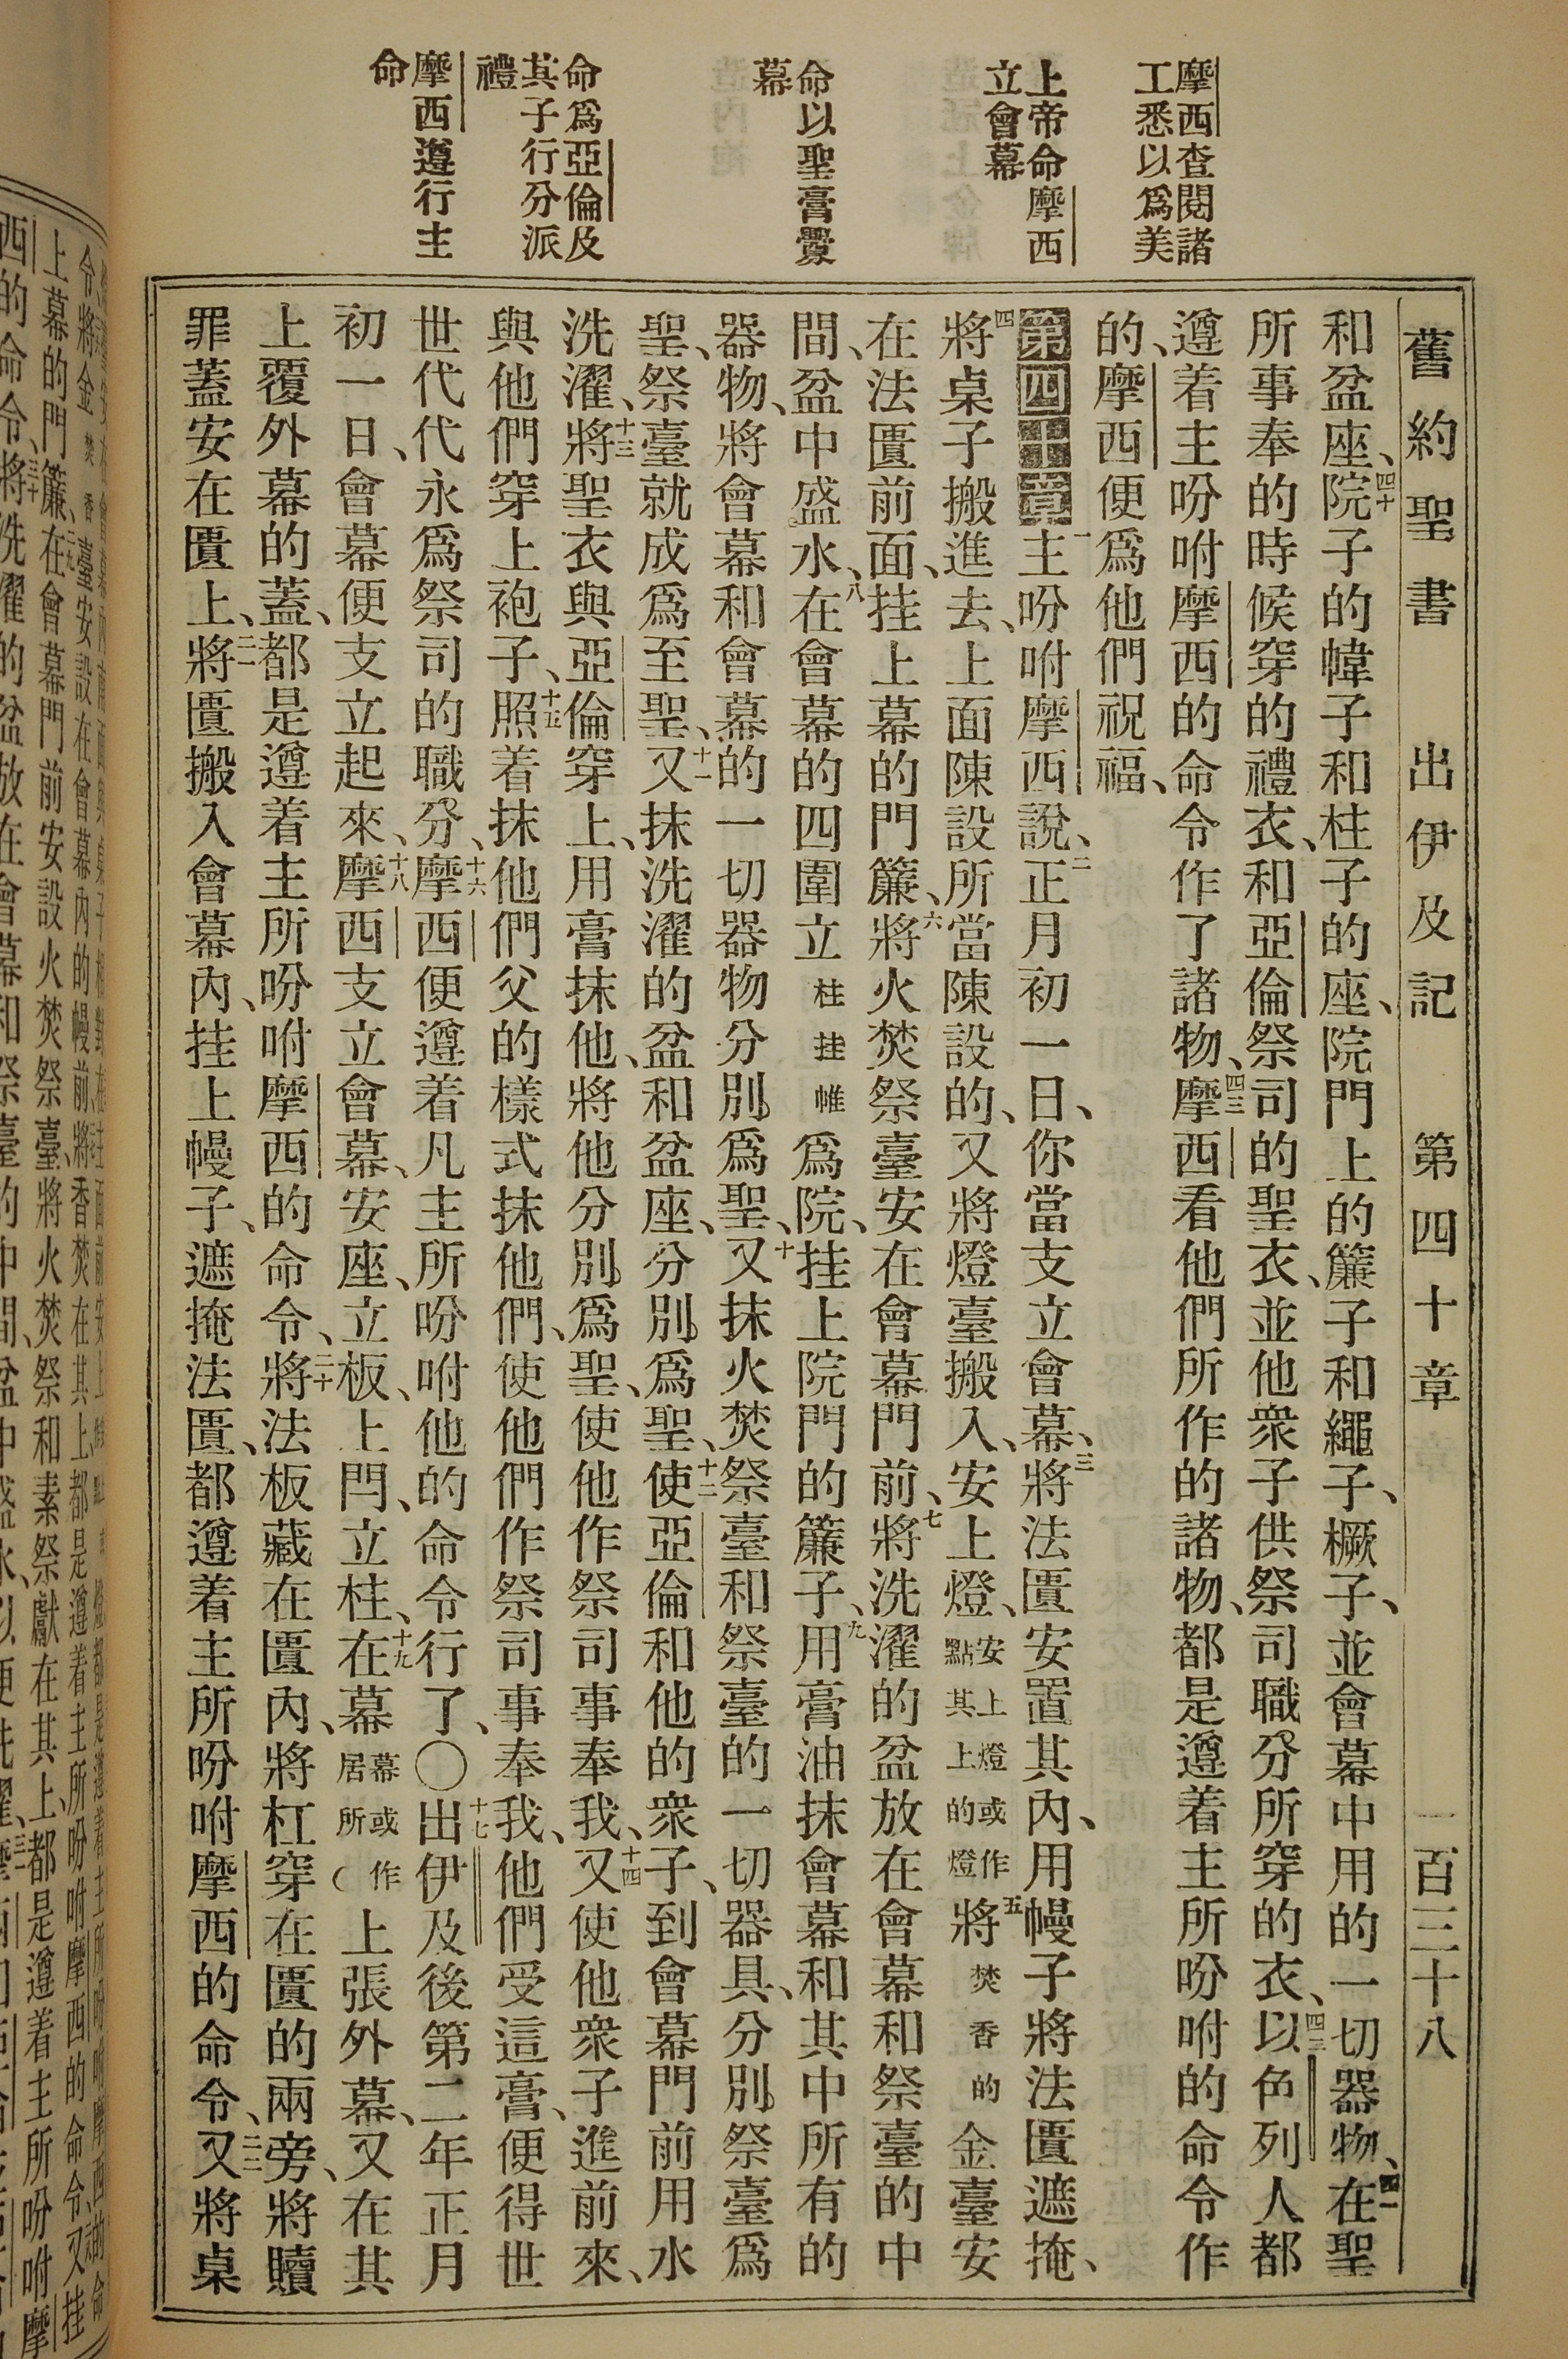 舊約聖書 出伊及記 第四十章 一百三十八
摩西查閱諸
工悉以爲美
上帝命摩西
立會幕
命以聖膏釁
幕
命爲亞倫及
其子行分派
禮
摩西遵行主
命
和盆座、四十院子的幃子和柱子的座、院門上的簾子和繩子、橛子、並會幕中用的一切器物、四一在聖
所事奉的時候穿的禮衣、和亞倫祭司的聖衣、並他衆子供祭司職分所穿的衣、四二以色列人都
遵着主吩咐摩西的命令作了諸物、四三摩西看他們所作的諸物、都是遵着主所吩咐的命令作
的、摩西便爲他們祝福、
第四十章一主吩咐摩西說、二正月初一日、你當支立會幕、三將法匱安置其內、用幔子將法匱遮掩、
四將桌子搬進去、上面陳設所當陳設的、又將燈臺搬入、安上燈、安上燈或作點其上的燈五將焚香的金臺安
在法匱前面、挂上幕的門簾、六將火焚祭臺安在會幕門前、七將洗濯的盆放在會幕和祭臺的中
間、盆中盛水、八在會幕的四圍立柱挂帷爲院、挂上院門的簾子、九用膏油抹會幕和其中所有的
器物、將會幕和會幕的一切器物分別爲聖、十又抹火焚祭臺和祭臺的一切器具、分別祭臺爲
聖、祭臺就成爲至聖、十一又抹洗濯的盆和盆座、分別爲聖、十二使亞倫和他的衆子、到會幕門前用水
洗濯、十三將聖衣與亞倫穿上、用膏抹他、將他分別爲聖、使他作祭司事奉我、十四又使他衆子進前來、
與他們穿上袍子、十五照着抹他們父的樣式抹他們、使他們作祭司事奉我、他們受這膏、便得世
世代代永爲祭司的職分、十六摩西便遵着凡主所吩咐他的命令行了、〇十七出伊及後第二年正月
初一日、會幕便支立起來、十八摩西支立會幕、安座、立板、上閂、立柱、十九在幕幕或作居所上張外幕、又在其
上覆外幕的蓋、都是遵着主所吩咐摩西的命令、二十將法板藏在匱內、將杠穿在匱的兩旁、將贖
罪蓋安在匱上、二一將匱搬入會幕內、挂上幔子、遮掩法匱、都遵着主所吩咐摩西的命令、二二又將桌